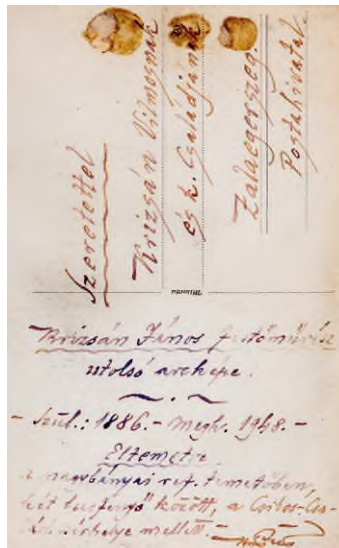 Szeretettel
Krizsán Vilmosnak
és k. Családjának
Zalaegerszeg.
Postahivatal.
Krizsán János festőművész
utolsó arcképe.
- Szül.: 1886. - Megh. 1948. -
Eltemetve
a nagybányai ref. temetőben,
két lucfenyő" között, a Csitos-Csa-
sírhelye mellett. -